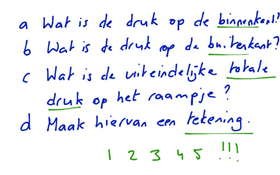 a Wat is de druk op de binnenkant?
b Wat is de druk op de buitenkant?
c Wat is de uiteindelijke totale
druk op het raampje?
d Maak hiervan een tekening.
1 2 3 4 5 !!!